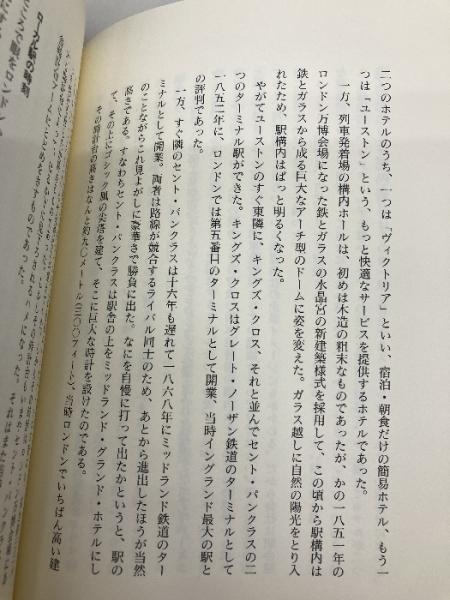 二つのホテルのうち、一つは「ヴィクトリア」といい、宿泊・朝食だけの簡易ホテル、もう一
つは「ユーストン」という、もっと快適なサービスを提供するホテルであった。
一方、列車発着場の構内ホールは、初めは木造の粗末なものであったが、かの一八五一年の
ロンドン万博会場になった鉄とガラスの水晶宮の新建築様式を採用して、この頃から駅構内は
鉄とガラスから成る巨大なアーチ型のドームに姿を変えた。ガラス越しに自然の陽光をとり入
れたため、駅構内はぱっと明るくなった。
やがてユーストンのすぐ東隣に、キングズ・クロス、それと並んでセント・パンクラスの二
つのターミナル駅ができた。キングズ・クロスはグレート・ノーザン鉄道のターミナルとして
一八五二年に、ロンドンでは第五番目のターミナルとして開業、当時イングランド最大の駅と
の評判であった。
一方、すぐ隣のセント・パンクラスは十六年も遅れて一八六八年にミッドランド鉄道のター
ミナルとして開業。両者は路線が競合するライバル同士のため、あとから進出したほうが当然
のことながらこれ見よがしに豪華さで勝負に出た。なにを自慢に打って出たかというと、駅の
高さである。すなわちセント・パンクラスは駅舎の上をミッドランド・グランド・ホテルにし
て、その上にゴシック風の尖塔を建て、そこに巨大な時計を設けたのである。
その時計台の高さはなんと約九〇メートル(三〇〇フィート)、当時ロンドンでいちばん高い建